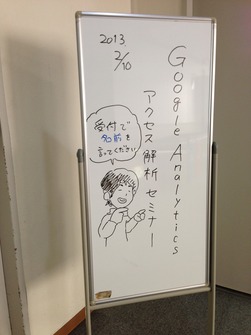 2013
2/10
Google Analytics
アクセス解析セミナー
受付で
名前を
言ってください